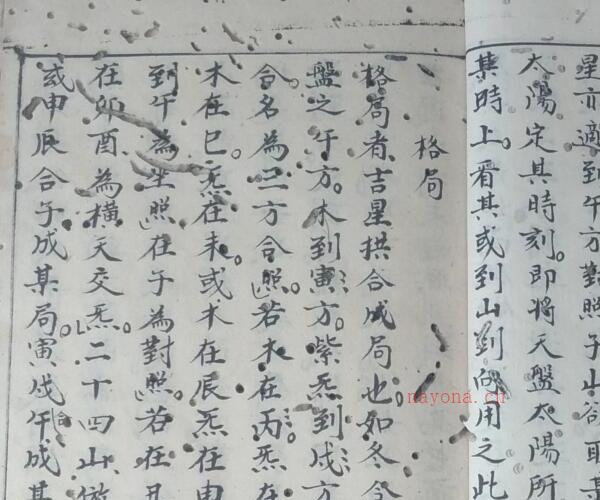 星亦適到午方對照子山欲取其
太陽定其時刻。即將天盤太陽所
其時上。看其或到山到向用之此
格局
格局者吉星拱合成局也。如冬令
盤之午方。木到寅方。紫炁到戌方
合。名為三方合照。若木在丙。炁在
木在巳。炁在未。或木在辰炁在申
到午為坐照。在子為對照。若在丑
在卯酉為橫天交炁。二十四山倣
或申辰合子成某局。寅戌午合成某
nayona.cn